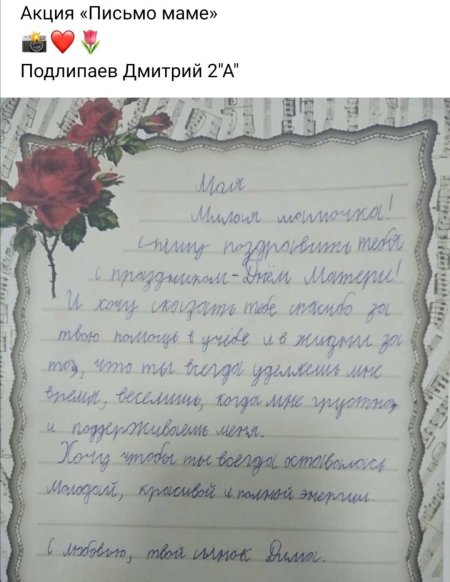 Акция «Письмо маме»
📸❤️🌷
Подлипаев Дмитрий 2"А"
Моя
Милая мамочка!
Спешу поздравить тебя
с праздником - Днём Матери!
И хочу сказать тебе спасибо за
твою помощь в учёбе и в жизни за
то, что ты всегда уделяешь мне
время, веселишь, когда мне грустно
и поддерживаешь меня.
Хочу чтобы ты всегда оставалась
молодой, красивой и полной энергии.
С любовью, твой сынок Дима.